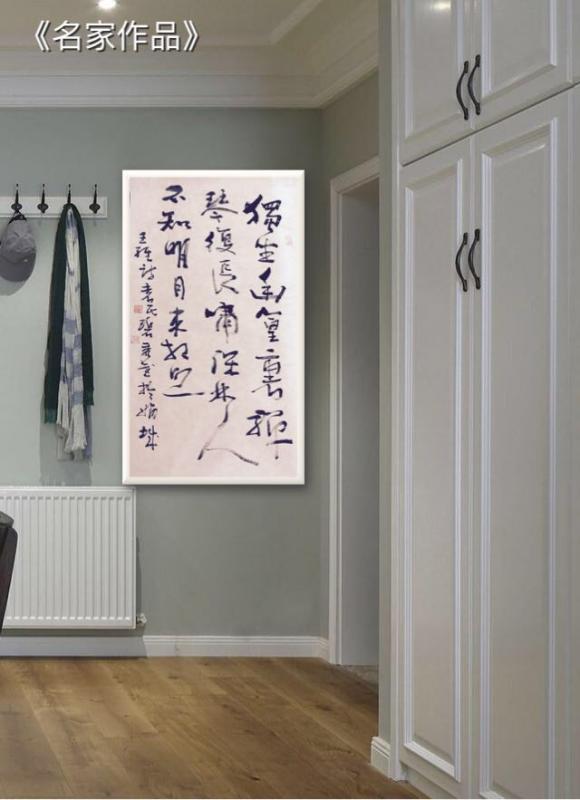 《名家作品》
獨坐幽篁裏彈
琴復長嘯深林人
不知明月来相照
王維詩